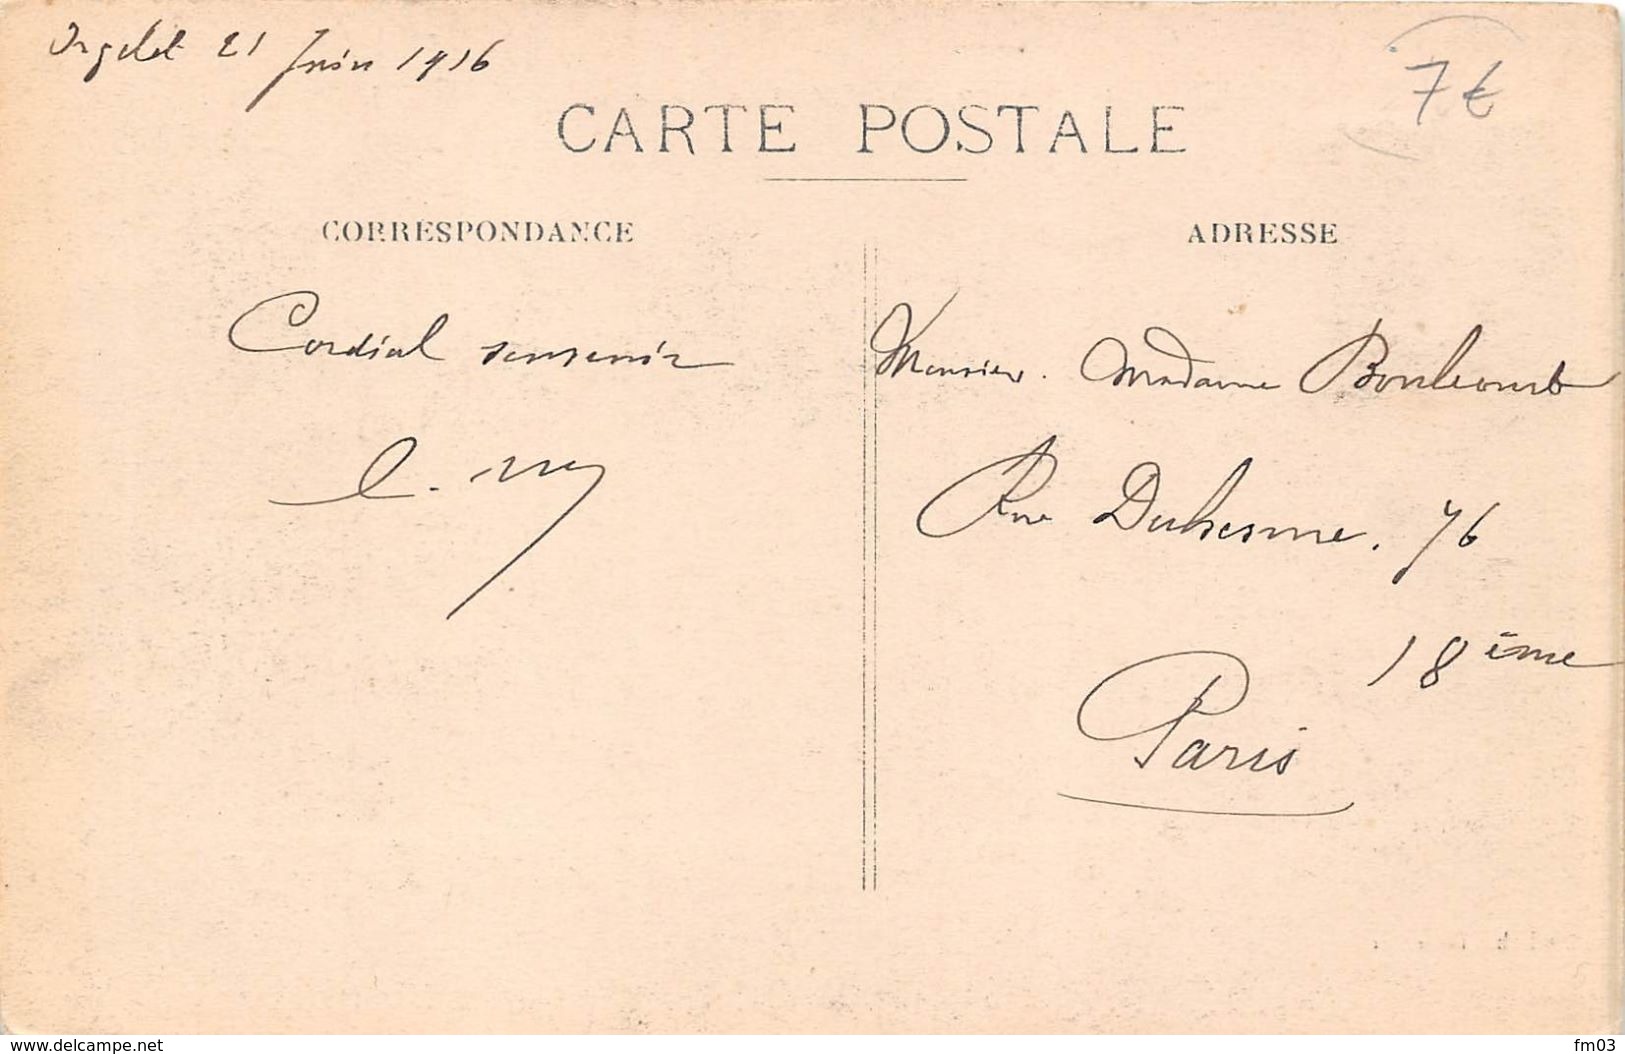 Orgelet 21 Juin 1916
7€
CARTE POSTALE
CORRESPONDANCE
ADRESSE
Cordial souvenir
Monsieur. Madame
Rue Duhesme. 76
18ème
Paris
www.delcampe.net
fm03